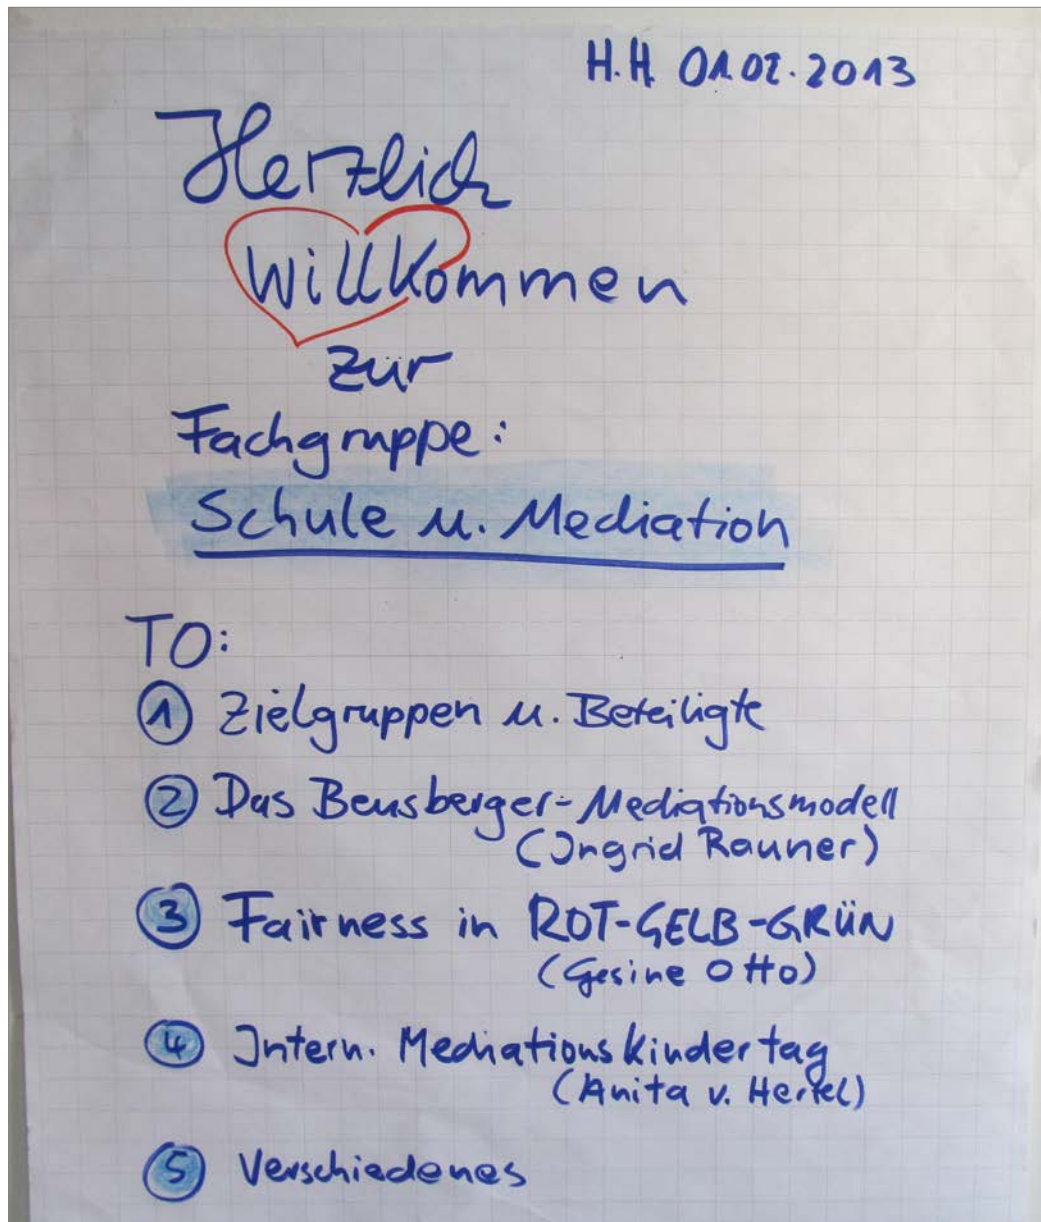 H.H. 01.02.2013
Herzlich
Willkommen
zur
Fachgruppe:
Schule u. Mediation
TO:
1 Zielgruppen u. Beteiligte
2 Das Bensberger-Mediationsmodell
(Ingrid Rauner)
3 Fairness in ROT-GELB-GRÜN
(Gesine Otto)
4 Intern. Mediationskindertag
(Anita v. Hertel)
5 Verschiedenes